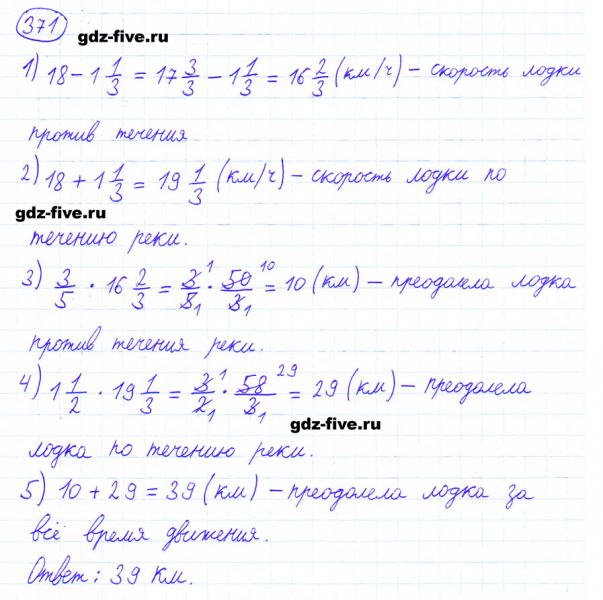 371 gdz-five.ru
1) 18 - 1 1/3 = 17 3/3 - 1 1/3 = 16 2/3 (км/ч) - скорость лодки
против течения
2) 18 + 1 1/3 = 19 1/3 (км/ч) - скорость лодки по
gdz-five.ru
течению реки.
3) 3/5 · 16 2/3 = 3 1/5 1 · 50 10/3 1 = 10 (км) - преодолела лодка
против течения реки.
4) 1 1/2 · 19 1/3 = 3 1/2 1 · 58 29/3 1 = 29 (км) - преодолела
gdz-five.ru
лодка по течению реки.
5) 10 + 29 = 39 (км) - преодолела лодка за
всё время движения.
Ответ: 39 км.